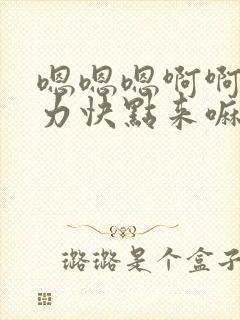 嗯嗯嗯啊啊
力快點来嘛
璐璐是个盒子